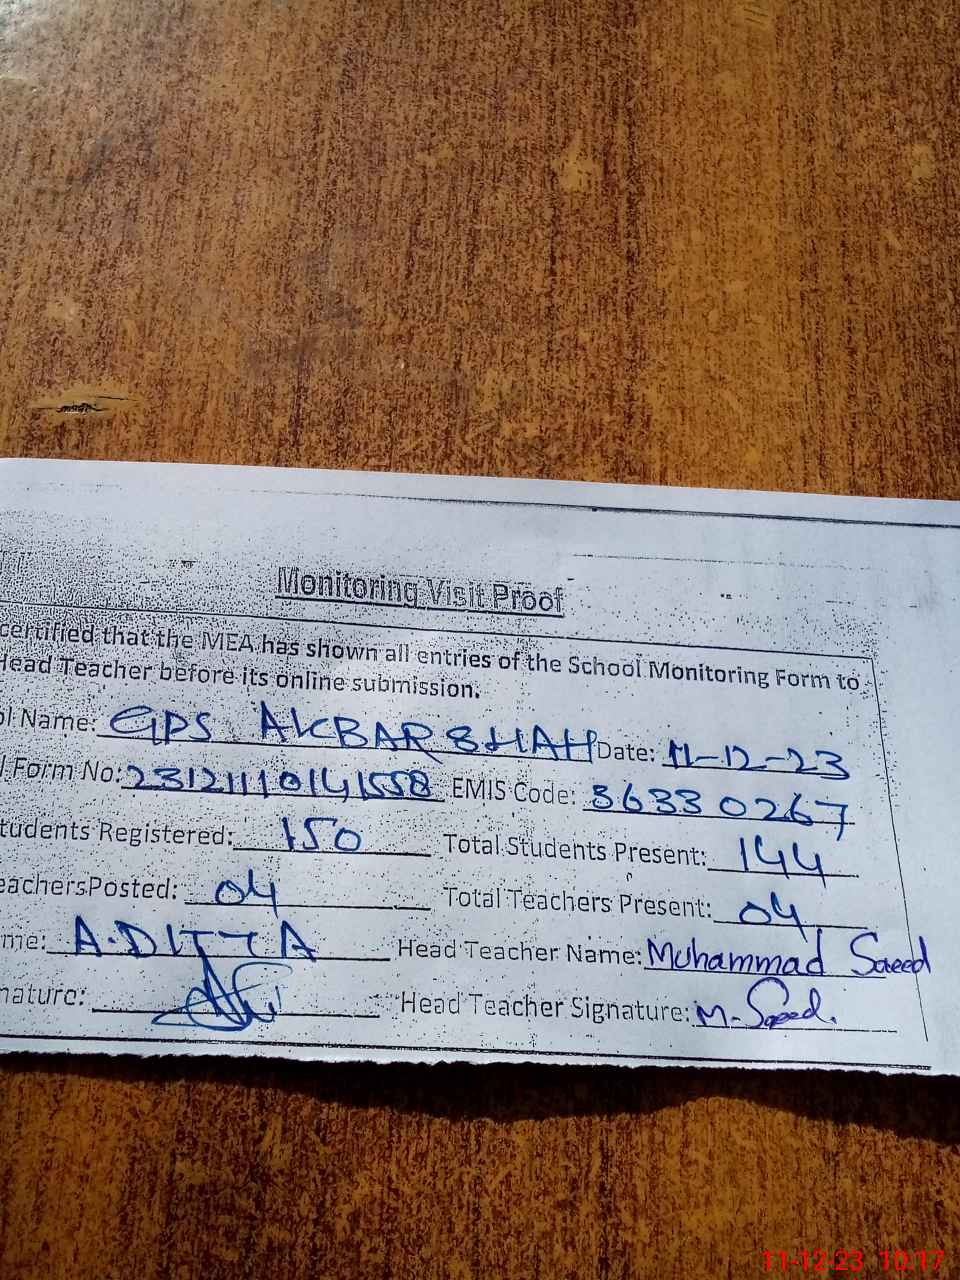 Monitoring Visit Proof
certified that the MEA has shown all entries of the School Monitoring Form to
Head Teacher before its online submission.
ol Name: GPS AKBAR SHAH Date: 11-12-23
l Form No: EMIS Code: 36330267
tudents Registered: 150 Total Students Present: 144
eachersPosted: 04 Total Teachers Present: 04
me: A.DITTA Head Teacher Name: Muhammad Saeed
nature: Head Teacher Signature: M-Saeed.
11-12-23 10:17